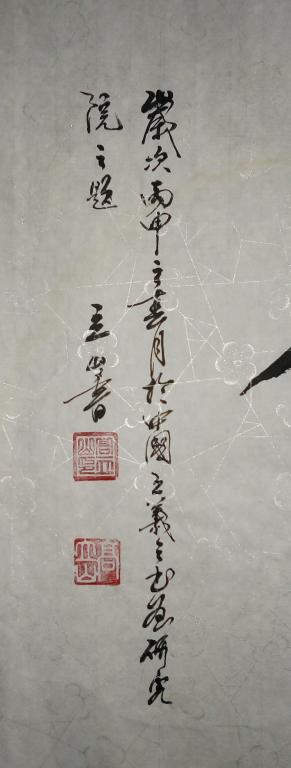 歲次丙申之春月於中國王羲之書畫研究
院之題
立山書